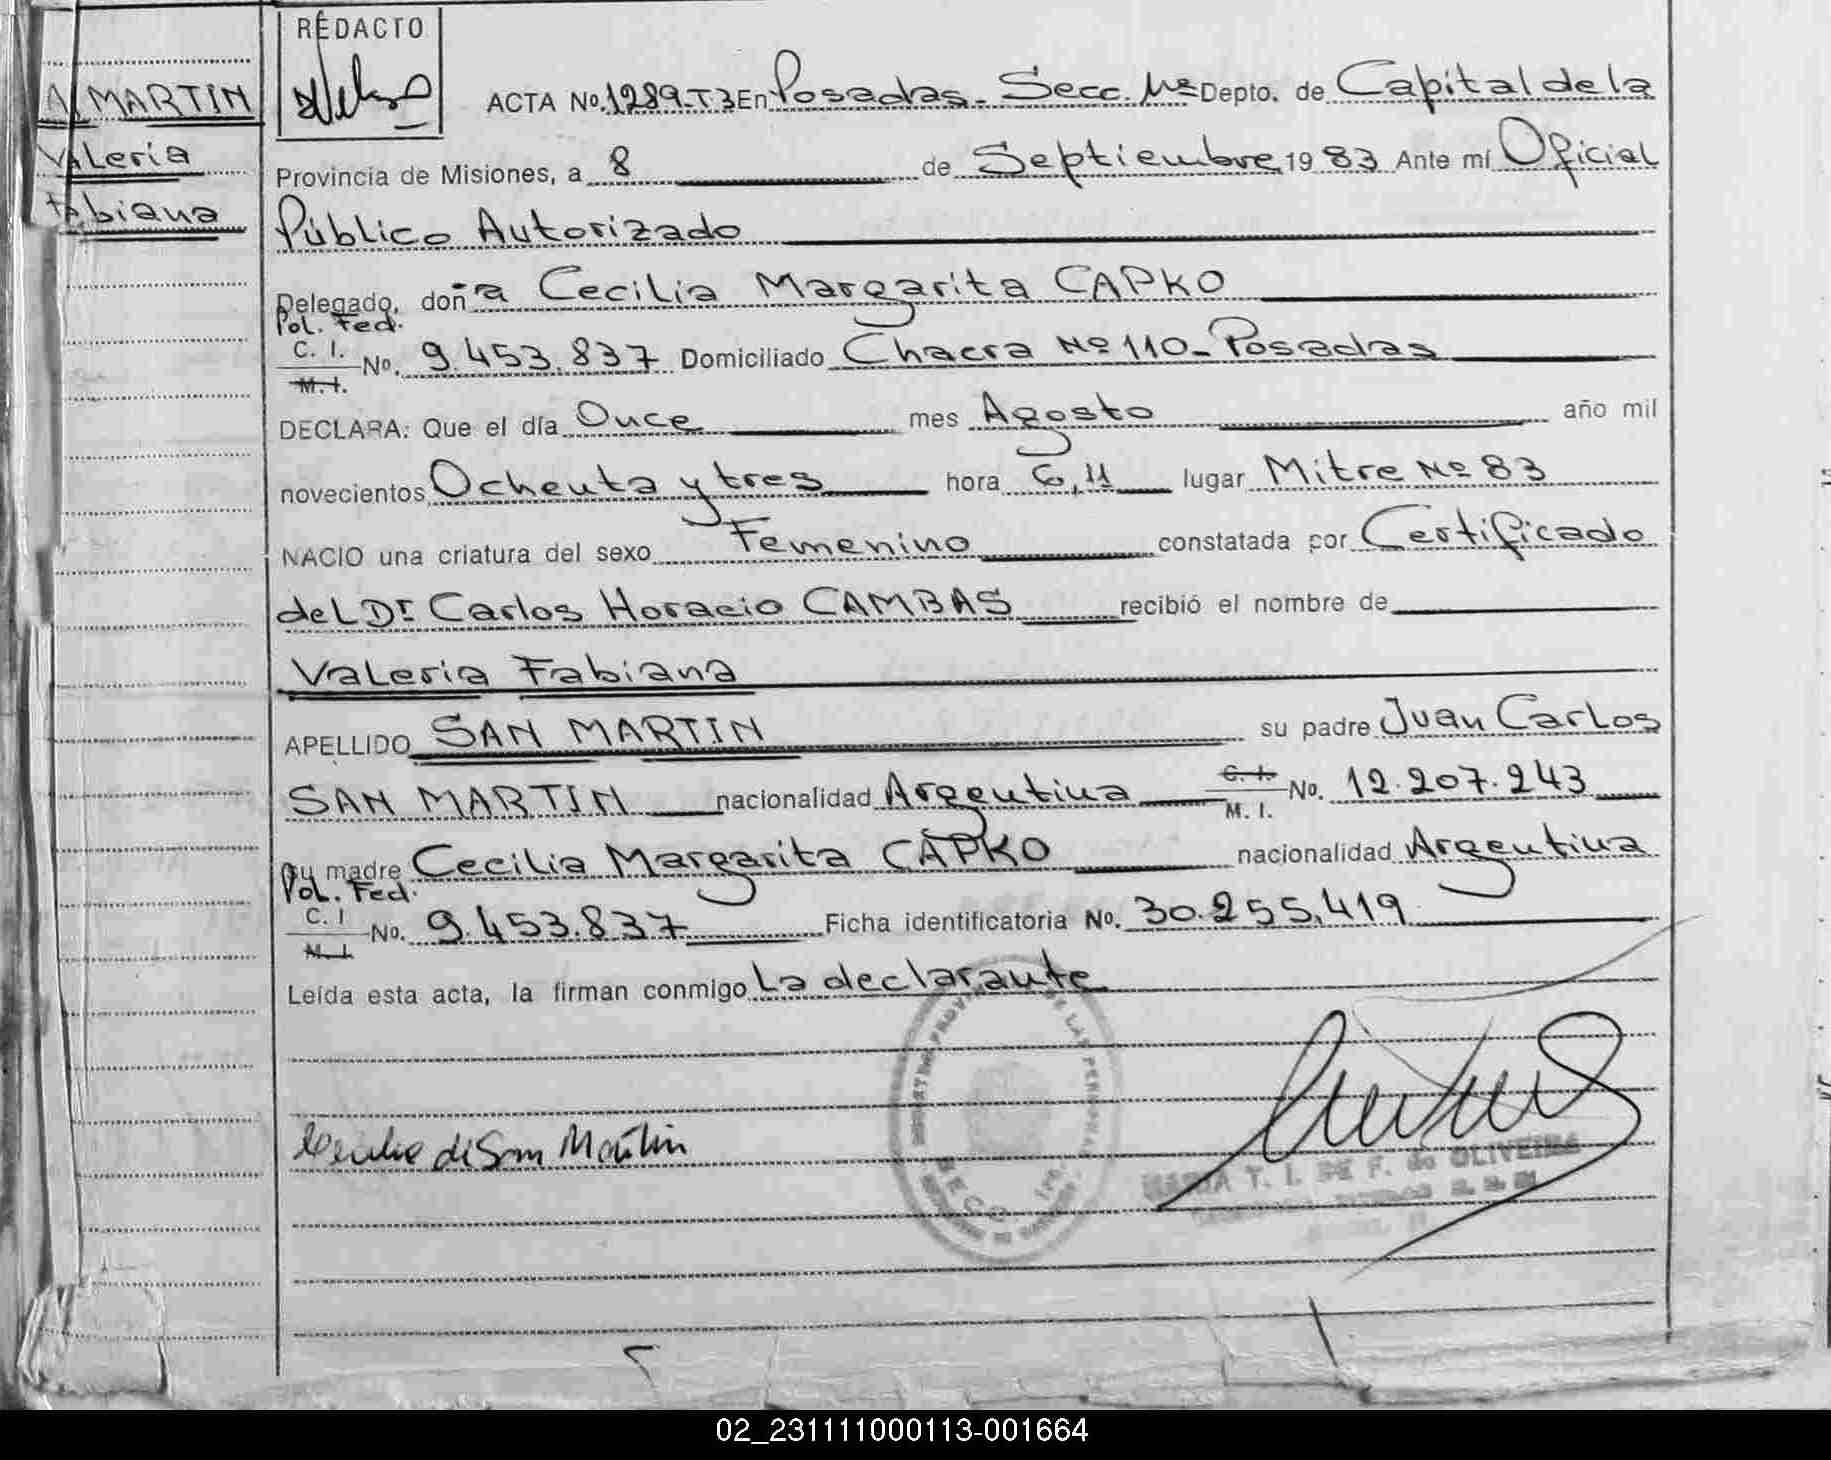 REDACTO
MARTIN
Valeria
Fabiana
ACTA No. 1289-T3 En Posadas - Secc. 1ª Depto. de Capital de la
Provincia de Misiones, a 8 de Septiembre 1983 Ante mí Oficial
Público Autorizado
Delegado, doña Cecilia Margarita CAPKO
Pol. Fed.
C. I. No. 9.453.837 Domiciliado Chacra Nº 110 - Posadas
M. I.
DECLARA: Que el día Once mes Agosto año mil
novecientos Ochenta y tres hora 6,11 lugar Mitre Nº 83
NACIO una criatura del sexo Femenino constatada por Certificado
del Dr Carlos Horacio CAMBAS recibió el nombre de
Valeria Fabiana
APELLIDO SAN MARTIN su padre Juan Carlos
SAN MARTIN nacionalidad Argentina C. I. No. 12.207.243
M. I.
su madre Cecilia Margarita CAPKO nacionalidad Argentina
Pol. Fed.
C. I No. 9.453.837 Ficha identificatoria No. 30.255.419
M. I.
Leída esta acta, la firman conmigo La declarante
de San Martin
T. I. DE F. de OLIVEIRA
02_231111000113-001664